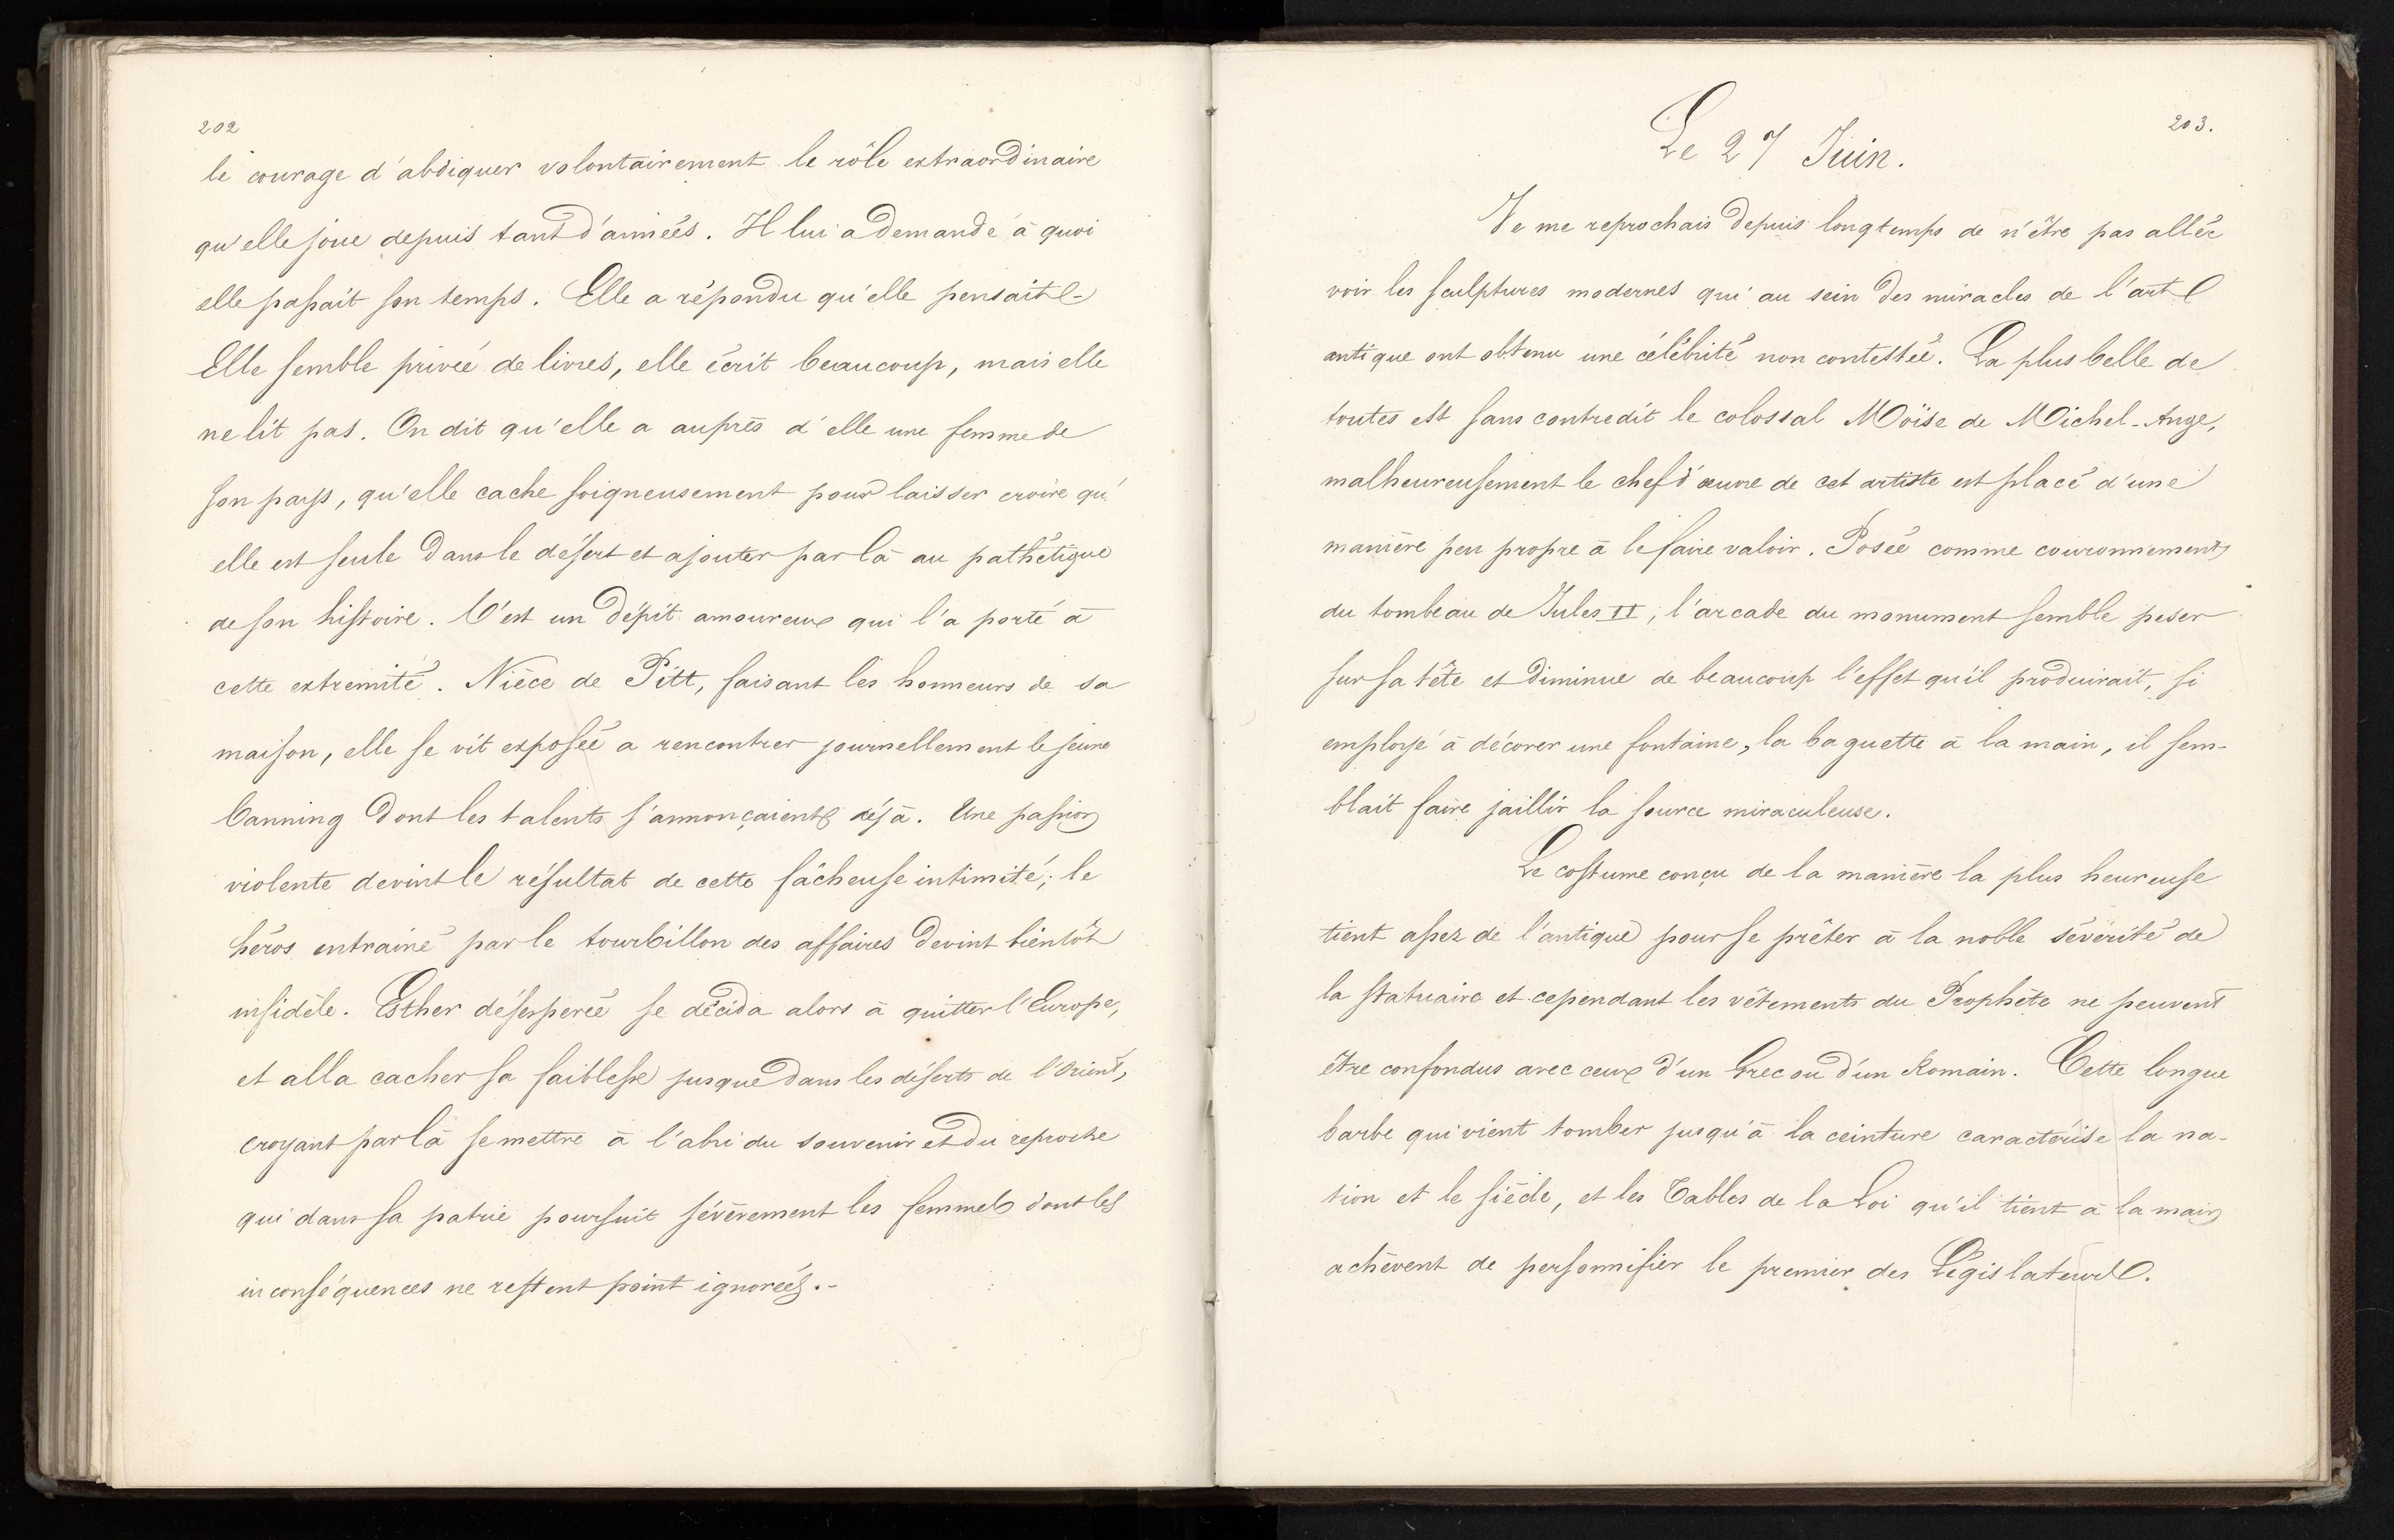 202
le courage d'abdiquer volontairement le rôle extraordinaire
qu'elle joue depuis tant d'années. Il lui a demandé à quoi
elle passait son temps. Elle a répondu qu'elle pensait -
Elle semble privée de livres, elle écrit beaucoup, mais elle
ne lit pas. On dit qu'elle a auprès d'elle une femme de
son pays, qu'elle cache soigneusement pour laisser croire qu'
elle est seule dans le désert et ajouter par là au pathétique
de son histoire. C'est un dépit amoureux qui l'a porté à
cette extremité. Nièce de Pitt, faisant les honneurs de sa
maison, elle se vit exposée a rencontrer journellement le jeune
Canning dont les talents s'annonçaient déjà. Une passion
violente devint le résultat de cette fâcheuse intimité; le
héros entrainé par le tourbillon des affaires devint bientôt
infidèle. Esther désesperée se décida alors à quitter l'Europe,
et alla cacher sa faiblesse jusque dans les déserts de l'Orient,
croyant par là se mettre à l'abri du souvenir et du reproche
qui dans sa patrie poursuit sévèrement les femmes dont les
inconséquences ne restent point ignorées.-
203.
Le 27 Juin.
Je me reprochais depuis longtemps de n'être pas allée
voir les sculptures modernes qui au sein des miracles de l'art
antique ont obtenu une célébrité non contestée. La plus belle de
toutes est sans contredit le colossal Moïse de Michel-Ange,
malheureusement le chef d'œuvre de cet artiste est placé d'une
manière peu propre à le faire valoir. Posée comme couronnement
du tombeau de Jules II, l'arcade du monument semble peser
sur sa tête et diminue de beaucoup l'effet qu'il produirait, si
employé à décorer une fontaine, la baguette à la main, il sem-
blait faire jaillir la source miraculeuse.
Le costume conçu de la manière la plus heureuse
tient assez de l'antique pour se prêter à la noble sévérité de
la statuaire et cependant les vêtements du Prophète ne peuvent
être confondus avec ceux d'un Grec ou d'un Romain. Cette longue
barbe qui vient tomber jusqu'à la ceinture caractérise la na-
tion et le siècle, et les Tables de la Loi qu'il tient à la main
achèvent de personnifier le premier des Législateurs.